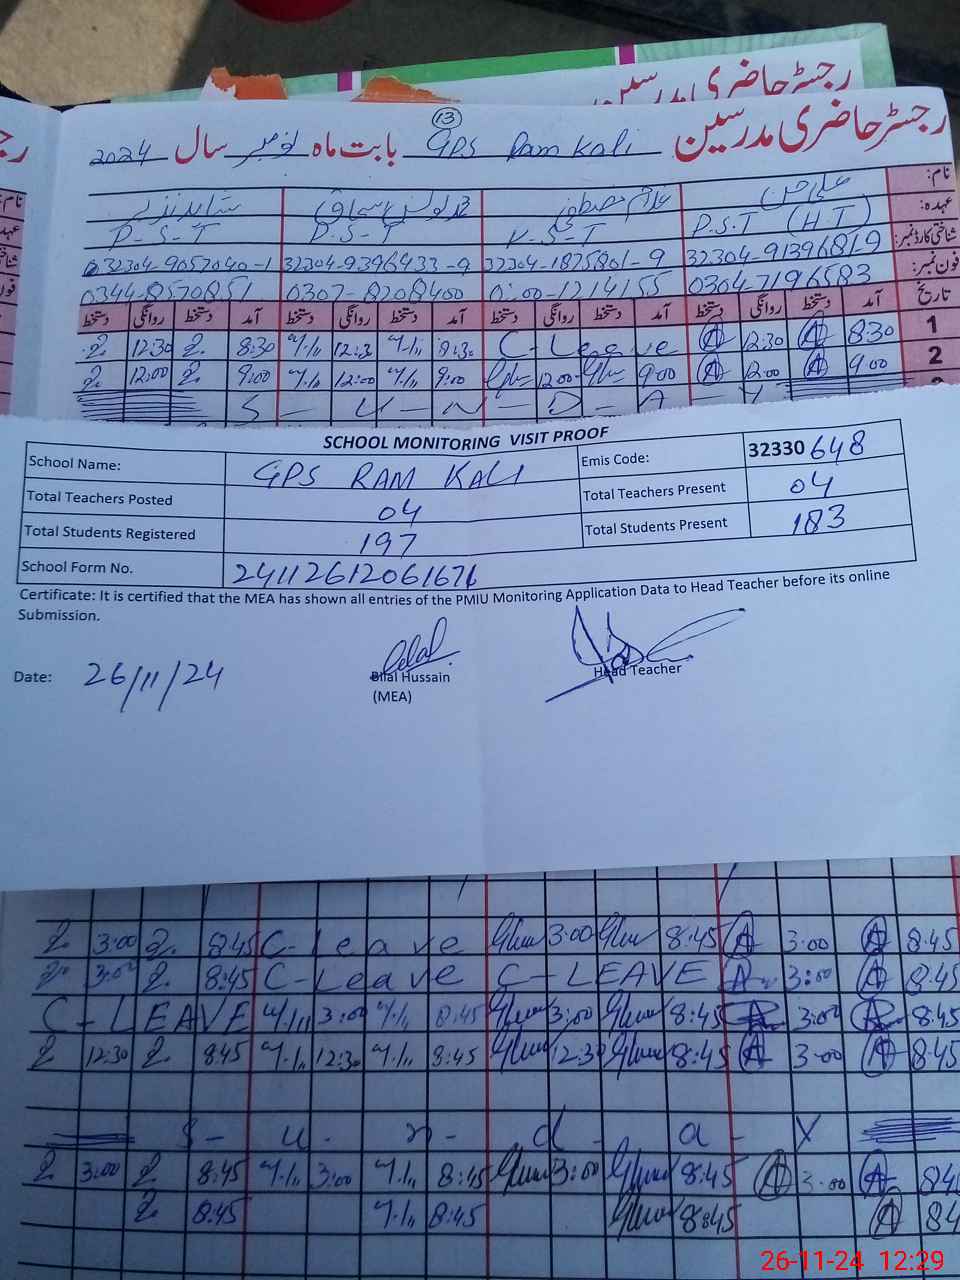 رجسٹر حاضری مدرسین
13
رجسٹر حاضری مدرسین GPS Ram Kali بابت ماہ نومبر سال 2024
نام: علی حسن غلام مصطفیٰ محمد یونس اسحاق
عہدہ: P.S.T (HT) P-S-T P-S-T
شناختی کارڈ نمبر: 32304-91396819 32304-1875801-9 32304-9396433-9 32304-9057040-1
فون نمبر: 0304-7196583 1214155 0307-8208400 0344-8570851
تاریخ آمد دستخط روانگی دستخط آمد دستخط روانگی دستخط آمد دستخط روانگی دستخط آمد دستخط روانگی دستخط
1 8:30 A 12:30 A C-Leave 8:30 12:3 8:30 12:30
2 9:00 A 12:00 A 9:00 12:00 9:00 12:00 9:00 12:00
S-U-N-D-A-Y
SCHOOL MONITORING VISIT PROOF
School Name: GPS RAM KALI Emis Code: 32330648
Total Teachers Posted 04 Total Teachers Present 04
Total Students Registered 197 Total Students Present 183
School Form No. 24112612061676
Certificate: It is certified that the MEA has shown all entries of the PMIU Monitoring Application Data to Head Teacher before its online
Submission.
Date: 26/11/24 Bilal Hussain Head Teacher
(MEA)
3:00 8:45 C-Leave 3:00 8:45 A 3:00 A 8:45
3:00 8:45 C-Leave C-LEAVE A 3:00 A 8:45
C-LEAVE 3:00 8:45 3:00 8:45 3:00 8:45
12:30 8:45 12:30 8:45 12:30 8:45 A 3:00 A 8:45
S-u-n-d-a-y
3:00 8:45 3:00 8:45 3:00 8:45 A 3:00 A 84
8:45 8:45 8:45 A 84
26-11-24 12:29